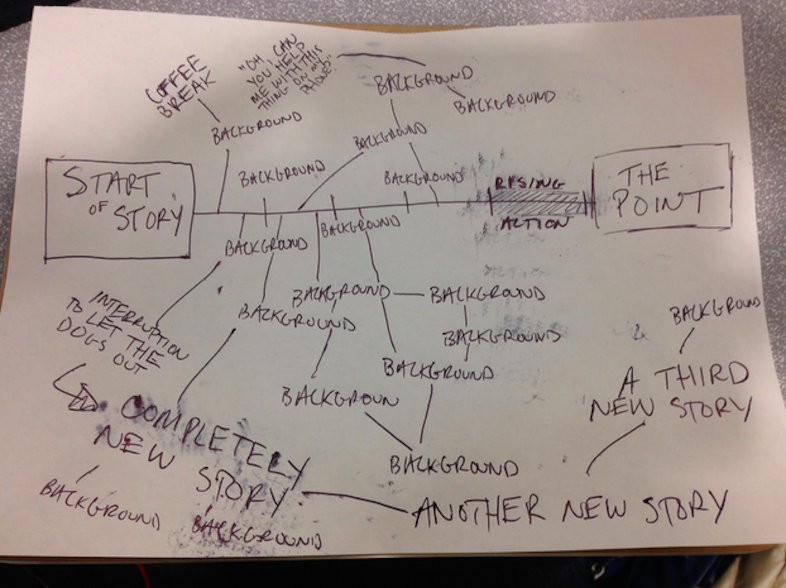 COFFEE
BREAK
"OH, CAN
YOU HELP
ME WITH THIS
THING ON MY
PHONE?"
BACKGROUND
BACKGROUND
BACKGROUND
BACKGROUND
BACKGROUND
BACKGROUND
START
OF
STORY
RISING
ACTION
THE
POINT
BACKGROUND
BACKGROUND
BACKGROUND
BACKGROUND
BACKGROUND
BACKGROUND
BACKGROUND
BACKGROUND
BACKGROUN
BACKGROUND
INTERRUPTION
TO LET THE
DOGS OUT
COMPLETELY
NEW
STORY
BACKGROUND
BACKGROUND
ANOTHER NEW STORY
A THIRD
NEW STORY
BACKGROUND